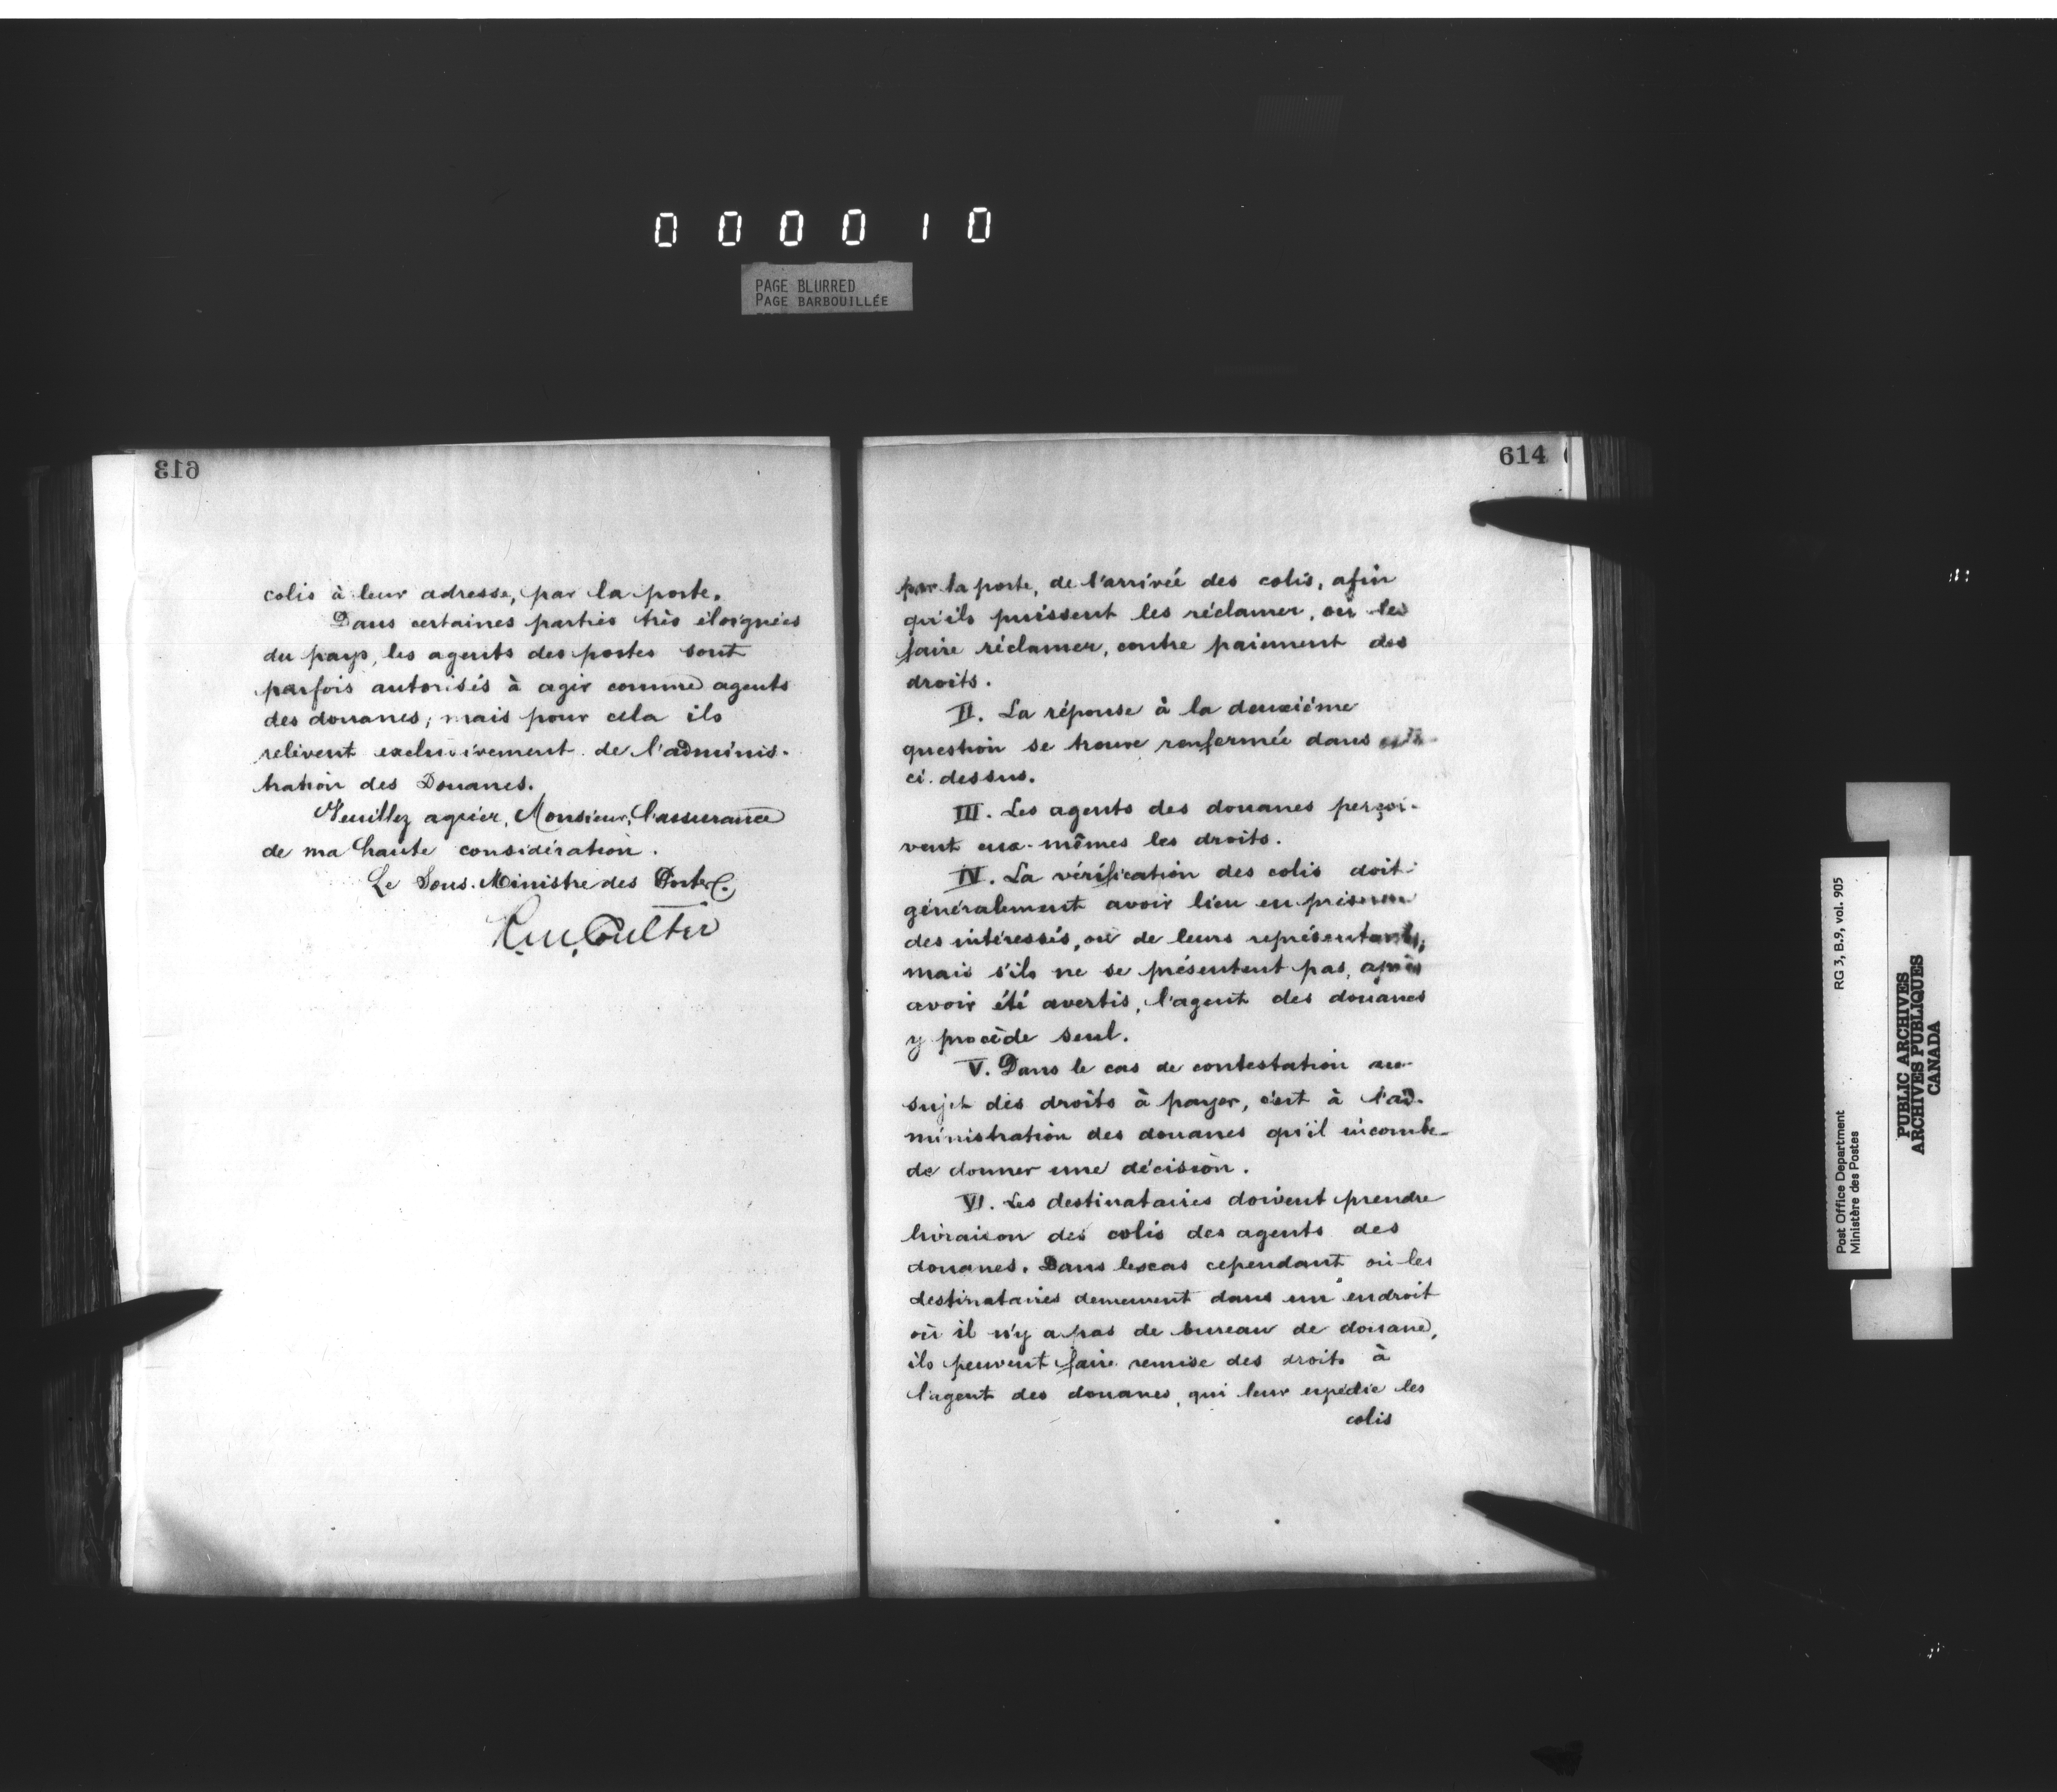 000010
PAGE BLURRED
PAGE BARBOUILLÉE
613
colis à leur adresse, par la poste.
Dans certaines parties très éloignées
du pays, les agents des postes sont
parfois autorisés à agir comme agents
des douanes; mais pour cela ils
relèvent exclusivement de l'adminis-
tration des Douanes.
Veuillez agréer, Monsieur, l'assurance
de ma haute considération.
Le Sous-Ministre des Postes.
Coulter
614
par la poste, de l'arrivée des colis, afin
qu'ils puissent les réclamer, ou les
faire réclamer, contre paiement des
droits.
II. La réponse à la deuxième
question se trouve renfermée dans
ci-dessus.
III. Les agents des douanes perçoi-
vent eux-mêmes les droits.
IV. La vérification des colis doit
généralement avoir lieu en
des intéressés, ou de leurs représentants;
mais s'ils ne se présentent pas, après
avoir été avertis, l'agent des douanes
y procède seul.
V. Dans le cas de contestation au
sujet des droits à payer, c'est à l'ad-
ministration des douanes qu'il incombe
de donner une décision.
VI. Les destinataires doivent prendre
livraison des colis des agents des
douanes. Dans les cas cependant où les
destinataires demeurent dans un endroit
où il n'y a pas de bureau de douane,
ils peuvent faire remise des droits à
l'agent des douanes, qui leur expédie les
colis
Post Office Department RG 3, B.9, vol. 905
Ministère des Postes
PUBLIC ARCHIVES
ARCHIVES PUBLIQUES
CANADA